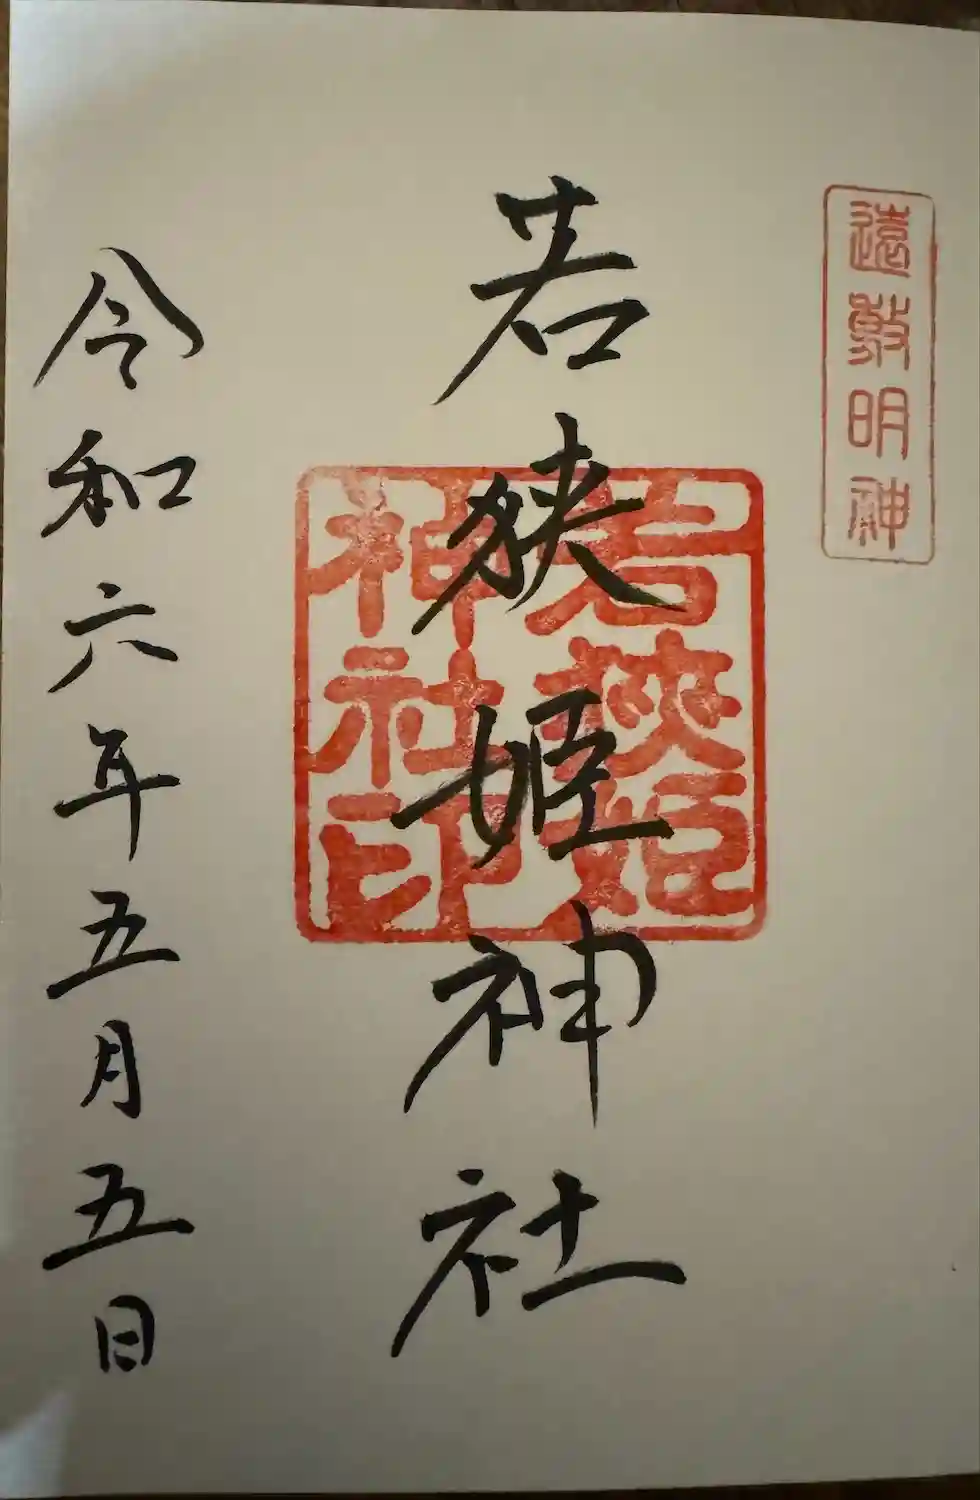 遠敷明神
若狭姫神社
若狹姫
神社印
令和六年五月五日